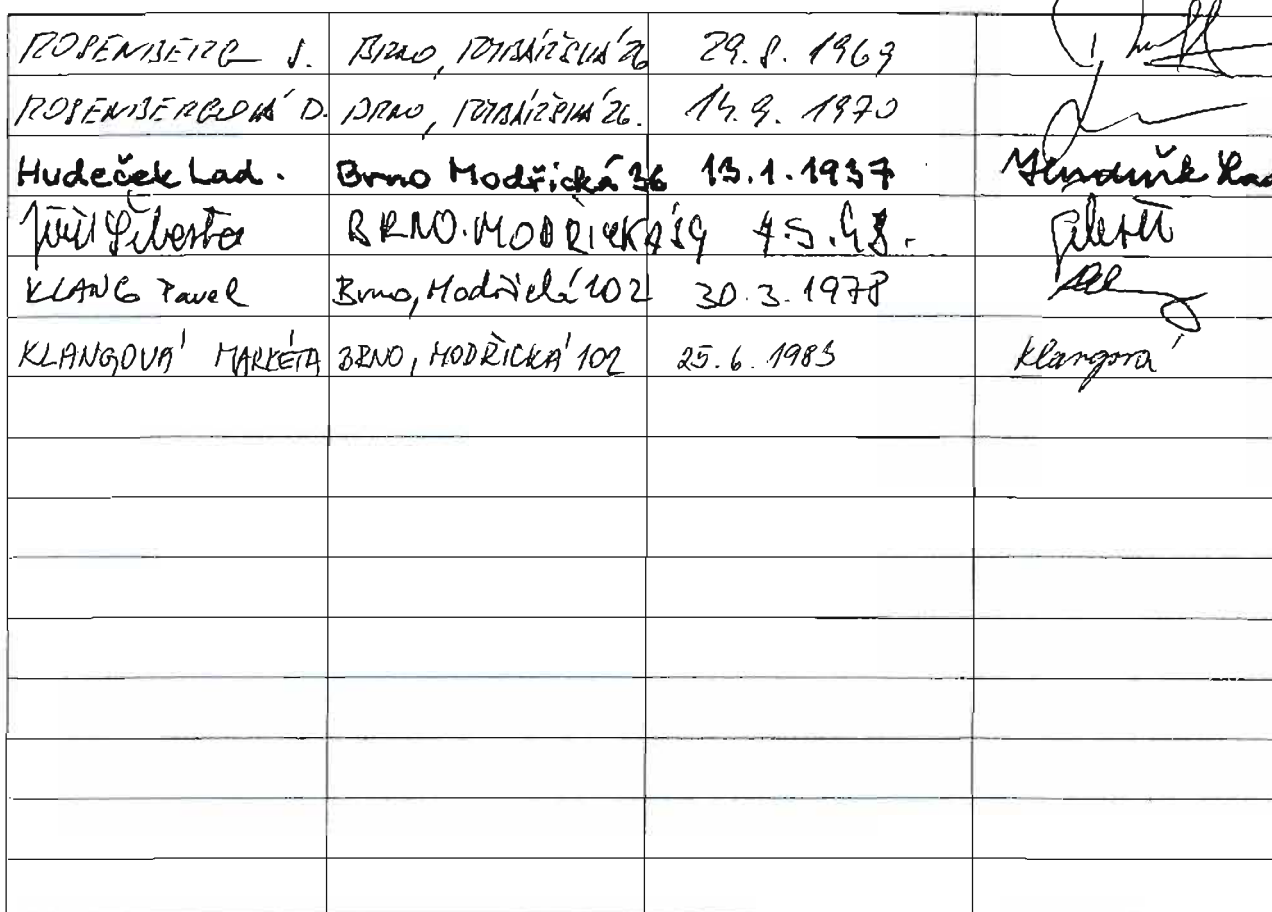 ROSENBERG J. BRNO, RYBÁŘSKÁ 26 29.8. 1969
ROSENBERGOVÁ D. BRNO, RYBÁŘSKÁ 26. 14.9. 1970
Hudeček Lad. Brno Modřická 36 13.1.1937 Hudeček Lad
Jiří Šebesta BRNO.MODŘICKÁ 59 4.5.48.
KLANG Pavel Brno, Modřická 102 30.3.1978
KLANGOVÁ MARKÉTA BRNO, MODŘICKÁ 102 25.6.1983 Klangová